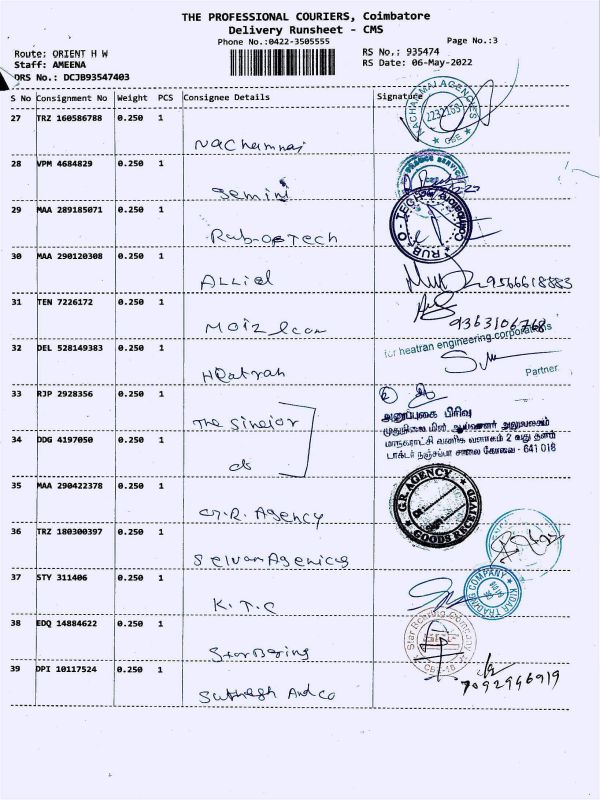 THE PROFESSIONAL COURIERS, Coimbatore
Delivery Runsheet - CMS
Phone No.:0422-3505555
Page No.:3
Route: ORIENT H W
RS No.: 935474
Staff: AMEENA
RS Date: 06-May-2022
DRS No.: DCJB93547403
S No Consignment No Weight PCS Consignee Details Signature
27 TRZ 160586788 0.250 1
Nachammai
NACHAMMAI AGENCIES
2232163
CBE
28 VPM 4684829 0.250 1
Gemini
SERVICE
29 MAA 289185071 0.250 1
Rub-o-Tech
RUB-O-TEC
30 MAA 290120308 0.250 1
Allied
9566618883
31 TEN 7226172 0.250 1
9363106768
32 DEL 528149383 0.250 1
Heatran
for heatran engineering corporations
Partner
33 RJP 2928356 0.250 1
The Sineior
அனுப்புகை பிரிவு
முதுநிலை மின் ஆய்வாளர் அலுவலகம்
34 DDG 4197050 0.250 1
do
மாநகராட்சி வணிக வளாகம் 2 வது தளம்
டாக்டர் நஞ்சப்பா சாலை கோவை - 641 018
35 MAA 290422378 0.250 1
G.R. Agency
G.R AGENCY
GOODS RECEIVED
36 TRZ 180300397 0.250 1
Selvam Agenices
37 STY 311406 0.250 1
K.T.C
KIDAR TRADING COMPANY
38 EDQ 14884622 0.250 1
Star Bering
Star Bearing Company
CBE-18
39 DPI 10117524 0.250 1
Subhash And co
7092946919